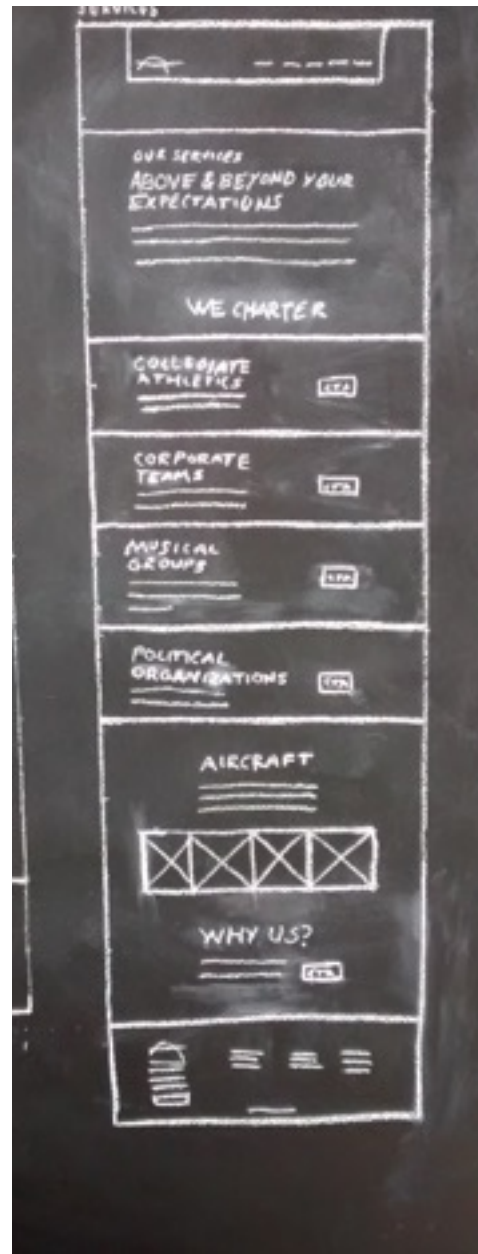 SERVICES
OUR SERVICES
ABOVE & BEYOND YOUR
EXPECTATIONS
WE CHARTER
COLLEGIATE
ATHLETICS
CTA
CORPORATE
TEAMS
CTA
MUSICAL
GROUPS
CTA
POLITICAL
ORGANIZATIONS
CTA
AIRCRAFT
WHY US?
CTA